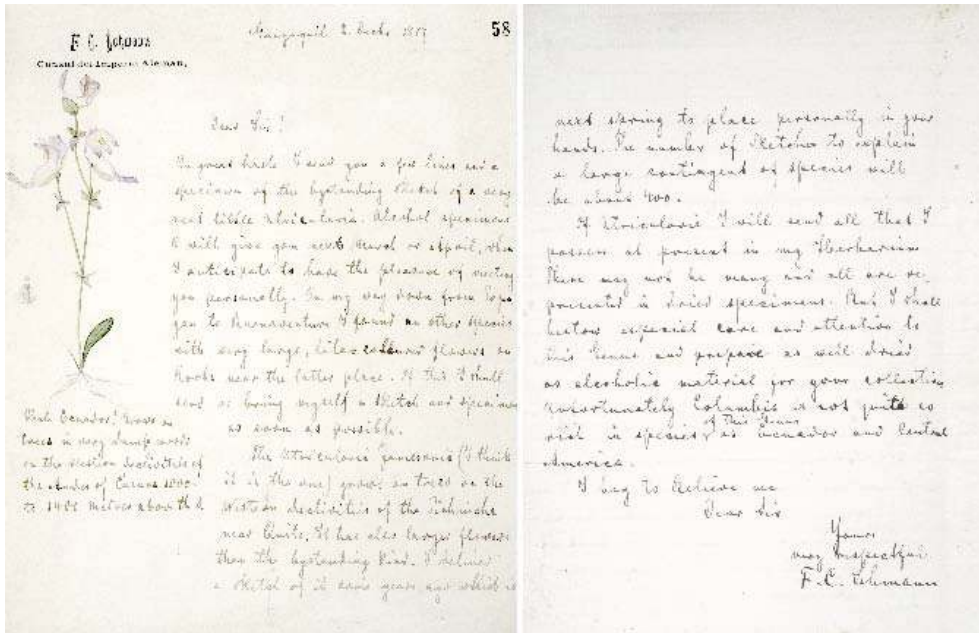 58
F. C. Lehmann
Consul del Imperio Aleman,
Guayaquil 2. Decbr.
Dear Sir!
In great haste I send you a few lines and a
specimen of the bystanding sketch of a very
neat little Utricularia. Alcohol specimens
I will give you next March or April, when
I anticipate to have the pleasure of meeting
you personally. On my way down from
to Buenaventura I found an other species
with very large, lilac coloured flowers on
Rocks near the latter place. Of this I shall
send or bring myself a sketch and specimens
as soon as possible.
The Utricularia Jamesonia (I think
it is the one) grows on trees on the
Western declivities of the Pichincha
near Quito. It has also larger flowers
than the bystanding kind. I
a sketch of it some years ago which is
Ecuador! Grows on
trees in very damp woods
on the western declivities of
the Andes of Cuenca 1000
to 1400 metres above the
next spring to place personally in your
hands. The number of Sketches to explain
a large contingent of species will
be about 400.
Of Utricularia I will send all that I
possess at present in my Herbarium
There may not be many and all are re-
presented in dried specimens. But I shall
bestow especial care and attention to
this Genus and prepare as well dried
as alcoholic material for your collection
Unfortunately Columbia is not quite so
rich in species of this Genus as Ecuador and Central
America.
I beg to believe me
Dear Sir
Yours
very respectful
F. C. Lehmann